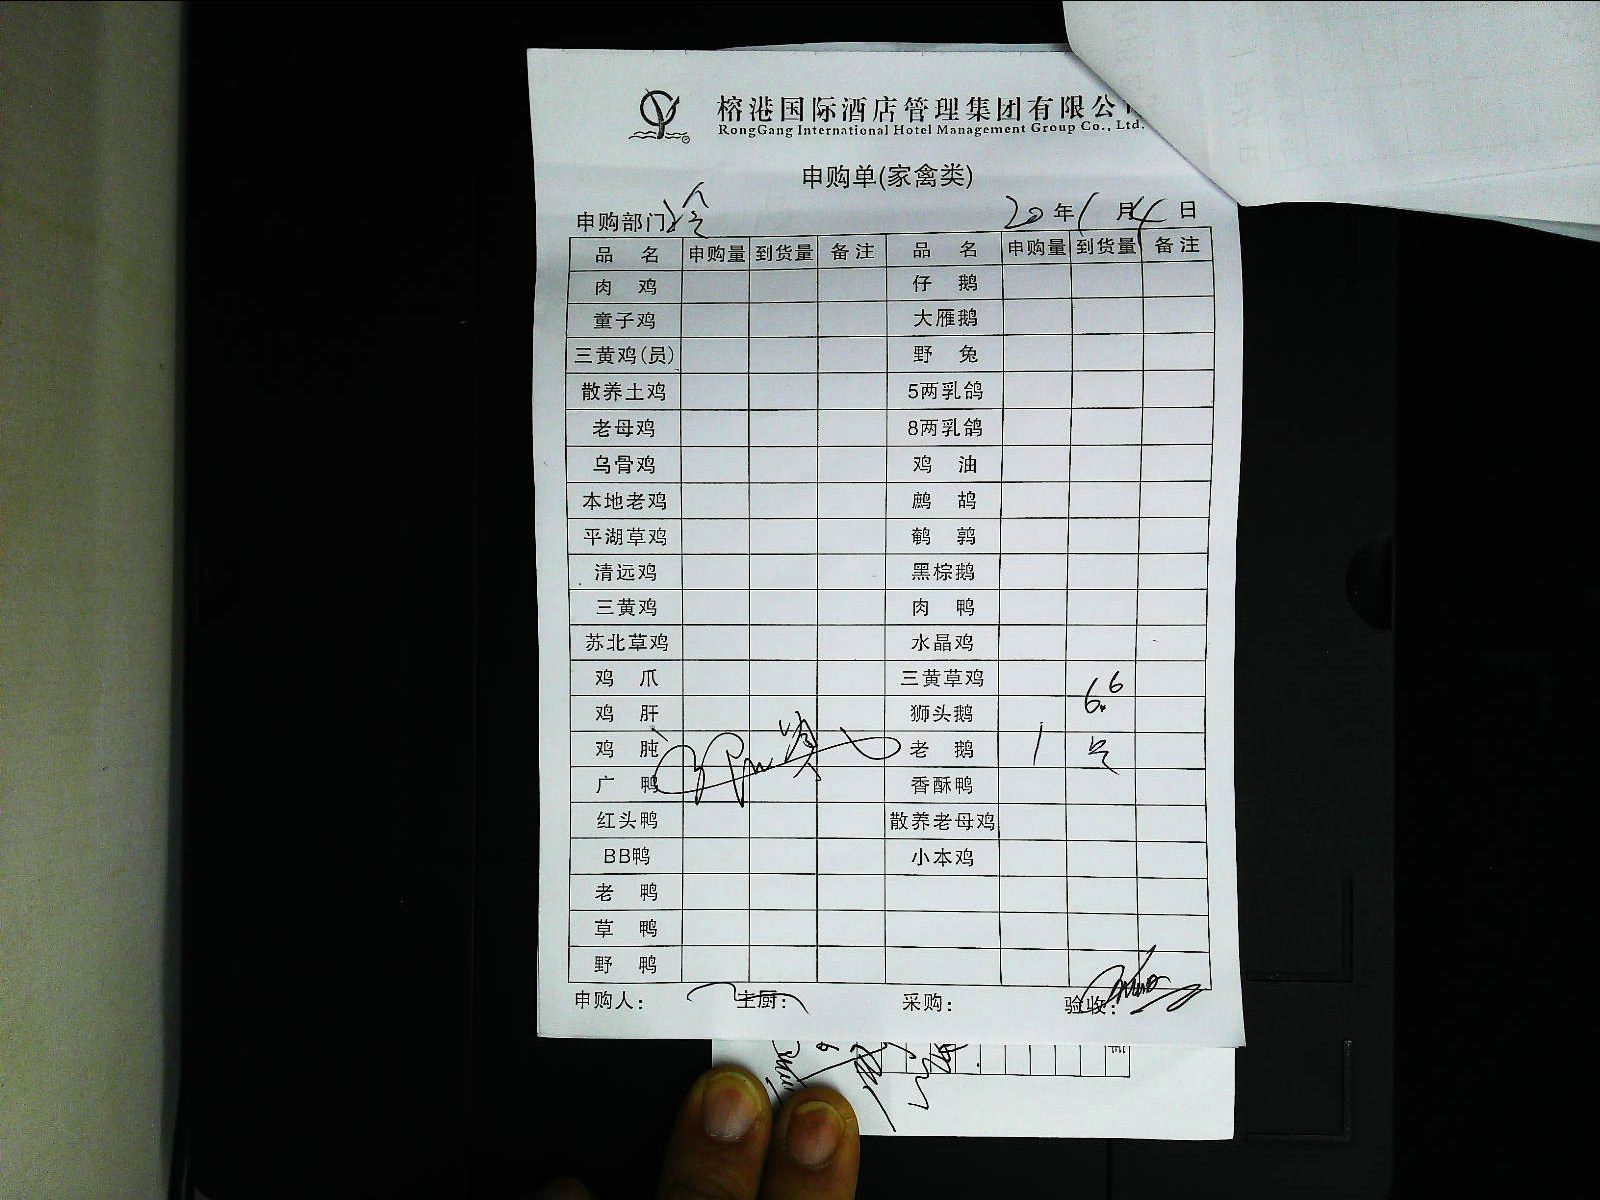 榕港国际酒店管理集团有限公
RongGang International Hotel Management Group Co., Ltd.
申购单(家禽类)
申购部门 冷 20年1月4日
品 名 申购量 到货量 备注 品 名 申购量 到货量 备注
肉 鸡 仔 鹅
童子鸡 大雁鹅
三黄鸡(员) 野 兔
散养土鸡 5两乳鸽
老母鸡 8两乳鸽
乌骨鸡 鸡 油
本地老鸡 鹧 鸪
平湖草鸡 鹌 鹑
清远鸡 黑棕鹅
三黄鸡 肉 鸭
苏北草鸡 水晶鸡
鸡 爪 三黄草鸡
鸡 肝 狮头鹅 6.6
鸡 肫 老 鹅 1
广 鸭 香酥鸭
红头鸭 散养老母鸡
BB鸭 小本鸡
老 鸭
草 鸭
野 鸭
申购人: 主厨: 采购: 验收: